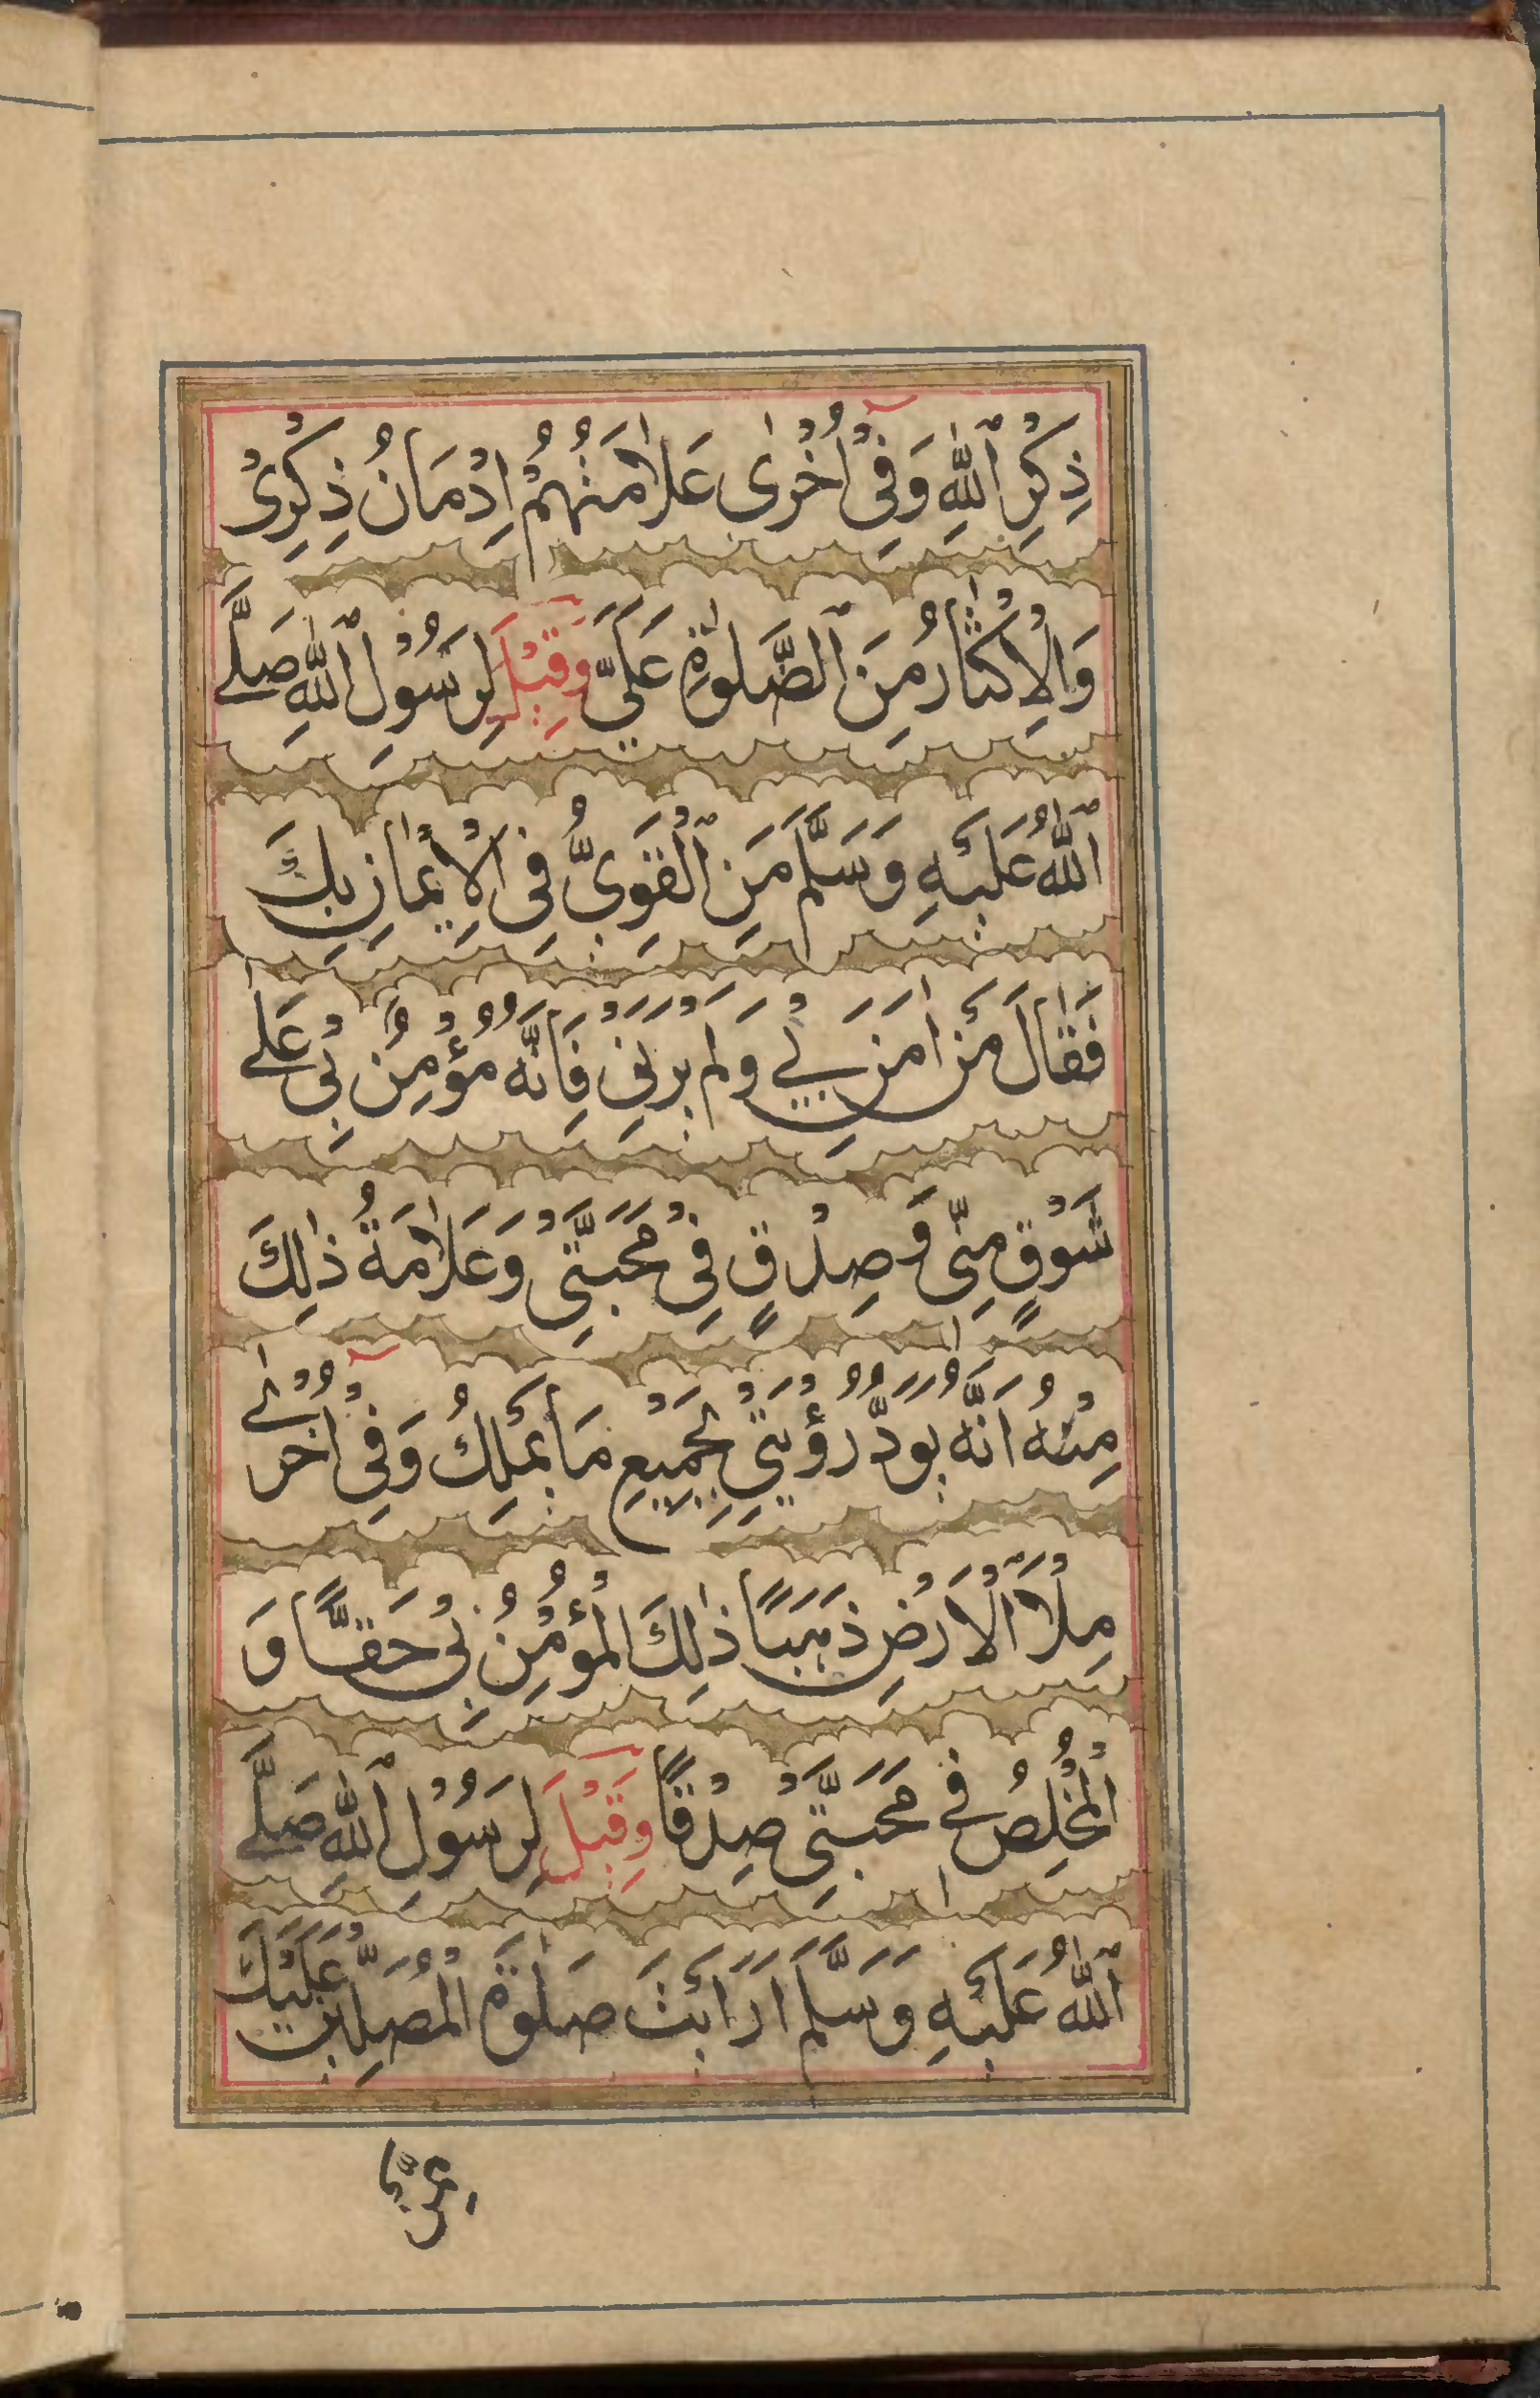 ذِكْرِ ٱللّٰهِ وَفِيْ اُخْرٰى عَلَامَتُهُمْ اِدْمَانُ ذِكْرِىْ
وَالْاِكْثَارُ مِنَ ٱلصَّلٰوةِ عَلَيَّ وَقِيْلَ لِرَسُوْلِ ٱللّٰهِ صَلَّے
ٱللّٰهُ عَلَيْهِ وَسَلَّمَ مَنِ ٱلْقَوِىُّ فِى الْاِيْمَانِ بِكَ
فَقَالَ مَنْ اٰمَنَ بِيْ وَلَمْ يَرَنِيْ فَاِنَّهٗ مُؤْمِنٌ بِيْ عَلٰى
شَوْقٍ مِنِّيْ وَصِدْقٍ فِيْ مَحَبَّتِيْ وَعَلَامَةُ ذٰلِكَ
مِنْهُ اَنَّهٗ يَوَدُّ رُؤْيَتِيْ بِجَمِيْعِ مَا يَمْلِكُ وَفِيْ اُخْرٰى
مِلْأَ ٱلْاَرْضِ ذَهَبًا ذٰلِكَ الْمُؤْمِنُ بِيْ حَقًّا وَ
الْمُخْلِصُ فِيْ مَحَبَّتِيْ صِدْقًا وَقِيْلَ لِرَسُوْلِ ٱللّٰهِ صَلَّے
ٱللّٰهُ عَلَيْهِ وَسَلَّمَ اَرَاَيْتَ صَلٰوةَ الْمُصَلِّيْنَ عَلَيْكَ
مِمَّنْ